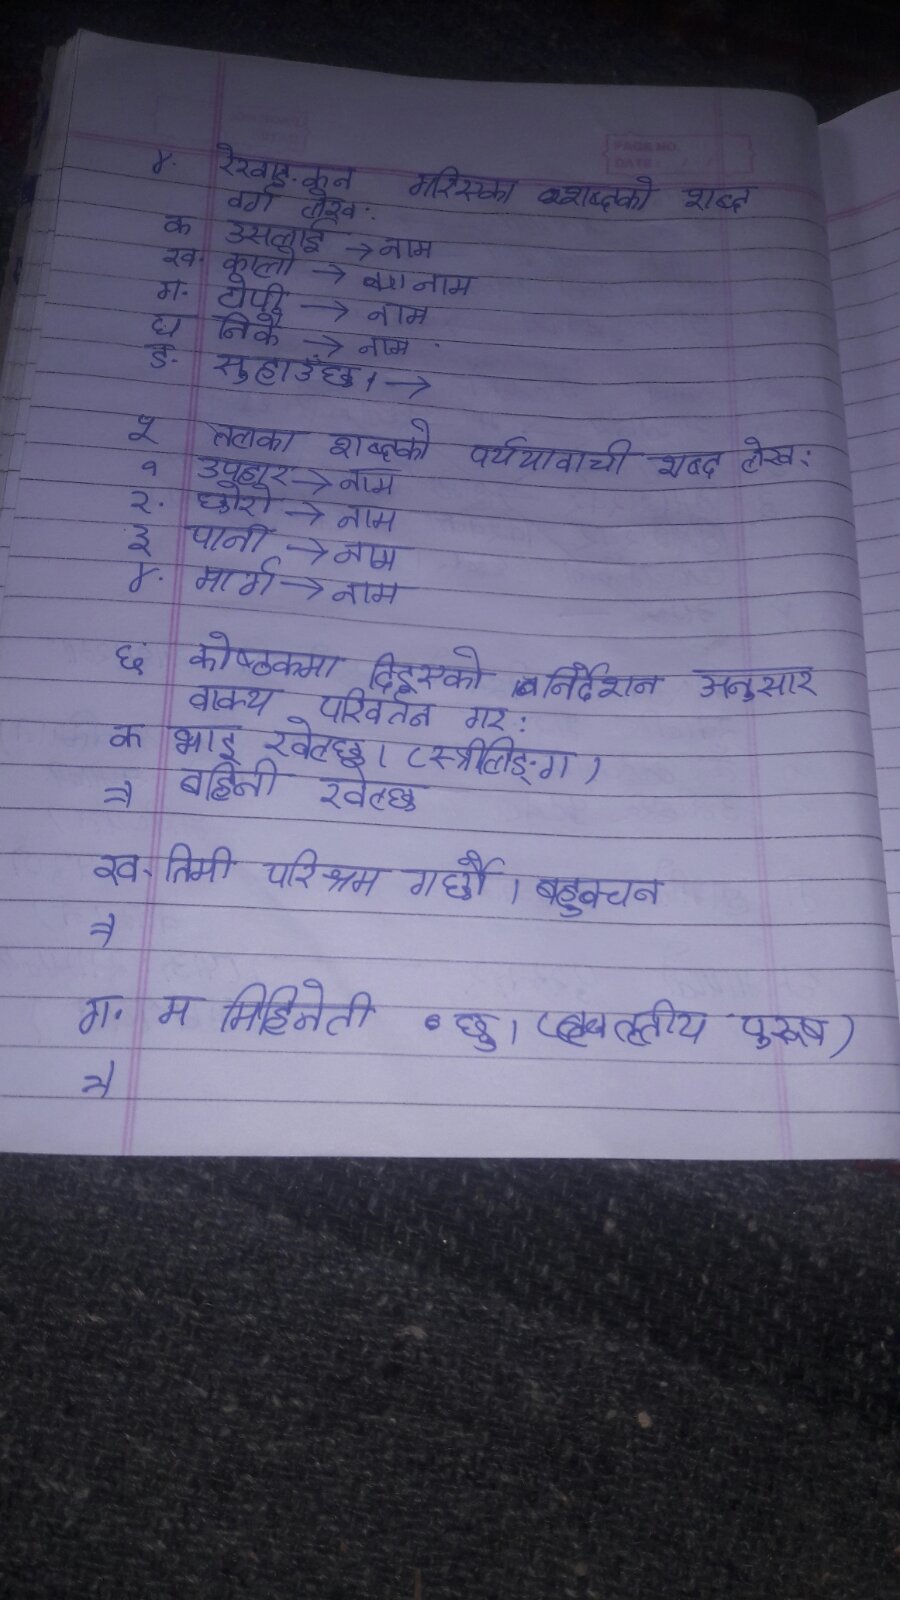 PAGE NO.
DATE
४. रेखाङ्कन गरिएका शब्दको शब्द
वर्ग लेख:
क उसलाई → नाम
ख. कालो → नाम
ग. टोपी → नाम
घ निकै → नाम
ङ. सुहाउँछ। →
५ तलका शब्दको पर्ययावाची शब्द लेख:
१ उपहार → नाम
२. छोरो → नाम
३ पानी → नाम
४. मार्ग → नाम
६ कोष्ठकमा दिइएको निर्देशन अनुसार
वाक्य परिवर्तन गर:
क भाइ खेल्छ। (स्त्रीलिङ्ग)
⇒ बहिनी खेल्छ
ख. तिमी परिश्रम गर्छौ। बहुवचन
⇒
ग. म मिहिनेती छु। (तृतीय पुरूष)
⇒